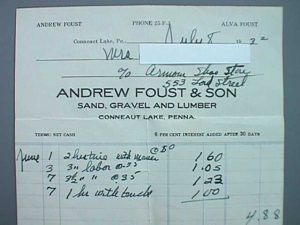 ANDREW FOUST PHONE 25-F ALVA FOUST
Conneaut Lake, Pa., July 8 1932
Mrs
% Armour Shoe Store
553 Street
ANDREW FOUST & SON
SAND, GRAVEL AND LUMBER
CONNEAUT LAKE, PENNA.
TERMS: NET CASH 6 PER CENT INTEREST ADDED AFTER 30 DAYS
June 1 2 with @ 80 1 60
3 3 " labor @ 35 1.05
7 3½ " " @ 35 1 23
7 1 hr with truck 1 00
4.88